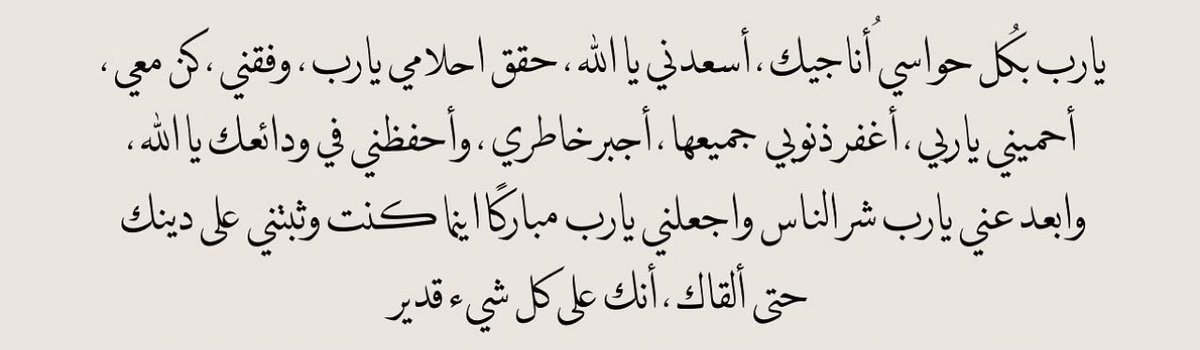 يارب بكُل حواسي أُناجيك، أسعدني يا الله، حقق احلامي يارب، وفقني ،كن معي،
أحميني ياربي، أغفر ذنوبي جميعها، أجبر خاطري، وأحفظني في ودائعك يا الله،
وابعد عني يارب شر الناس واجعلني يارب مباركًا اينما كنت وثبتني على دينك
حتى ألقاك، أنك على كل شيء قدير